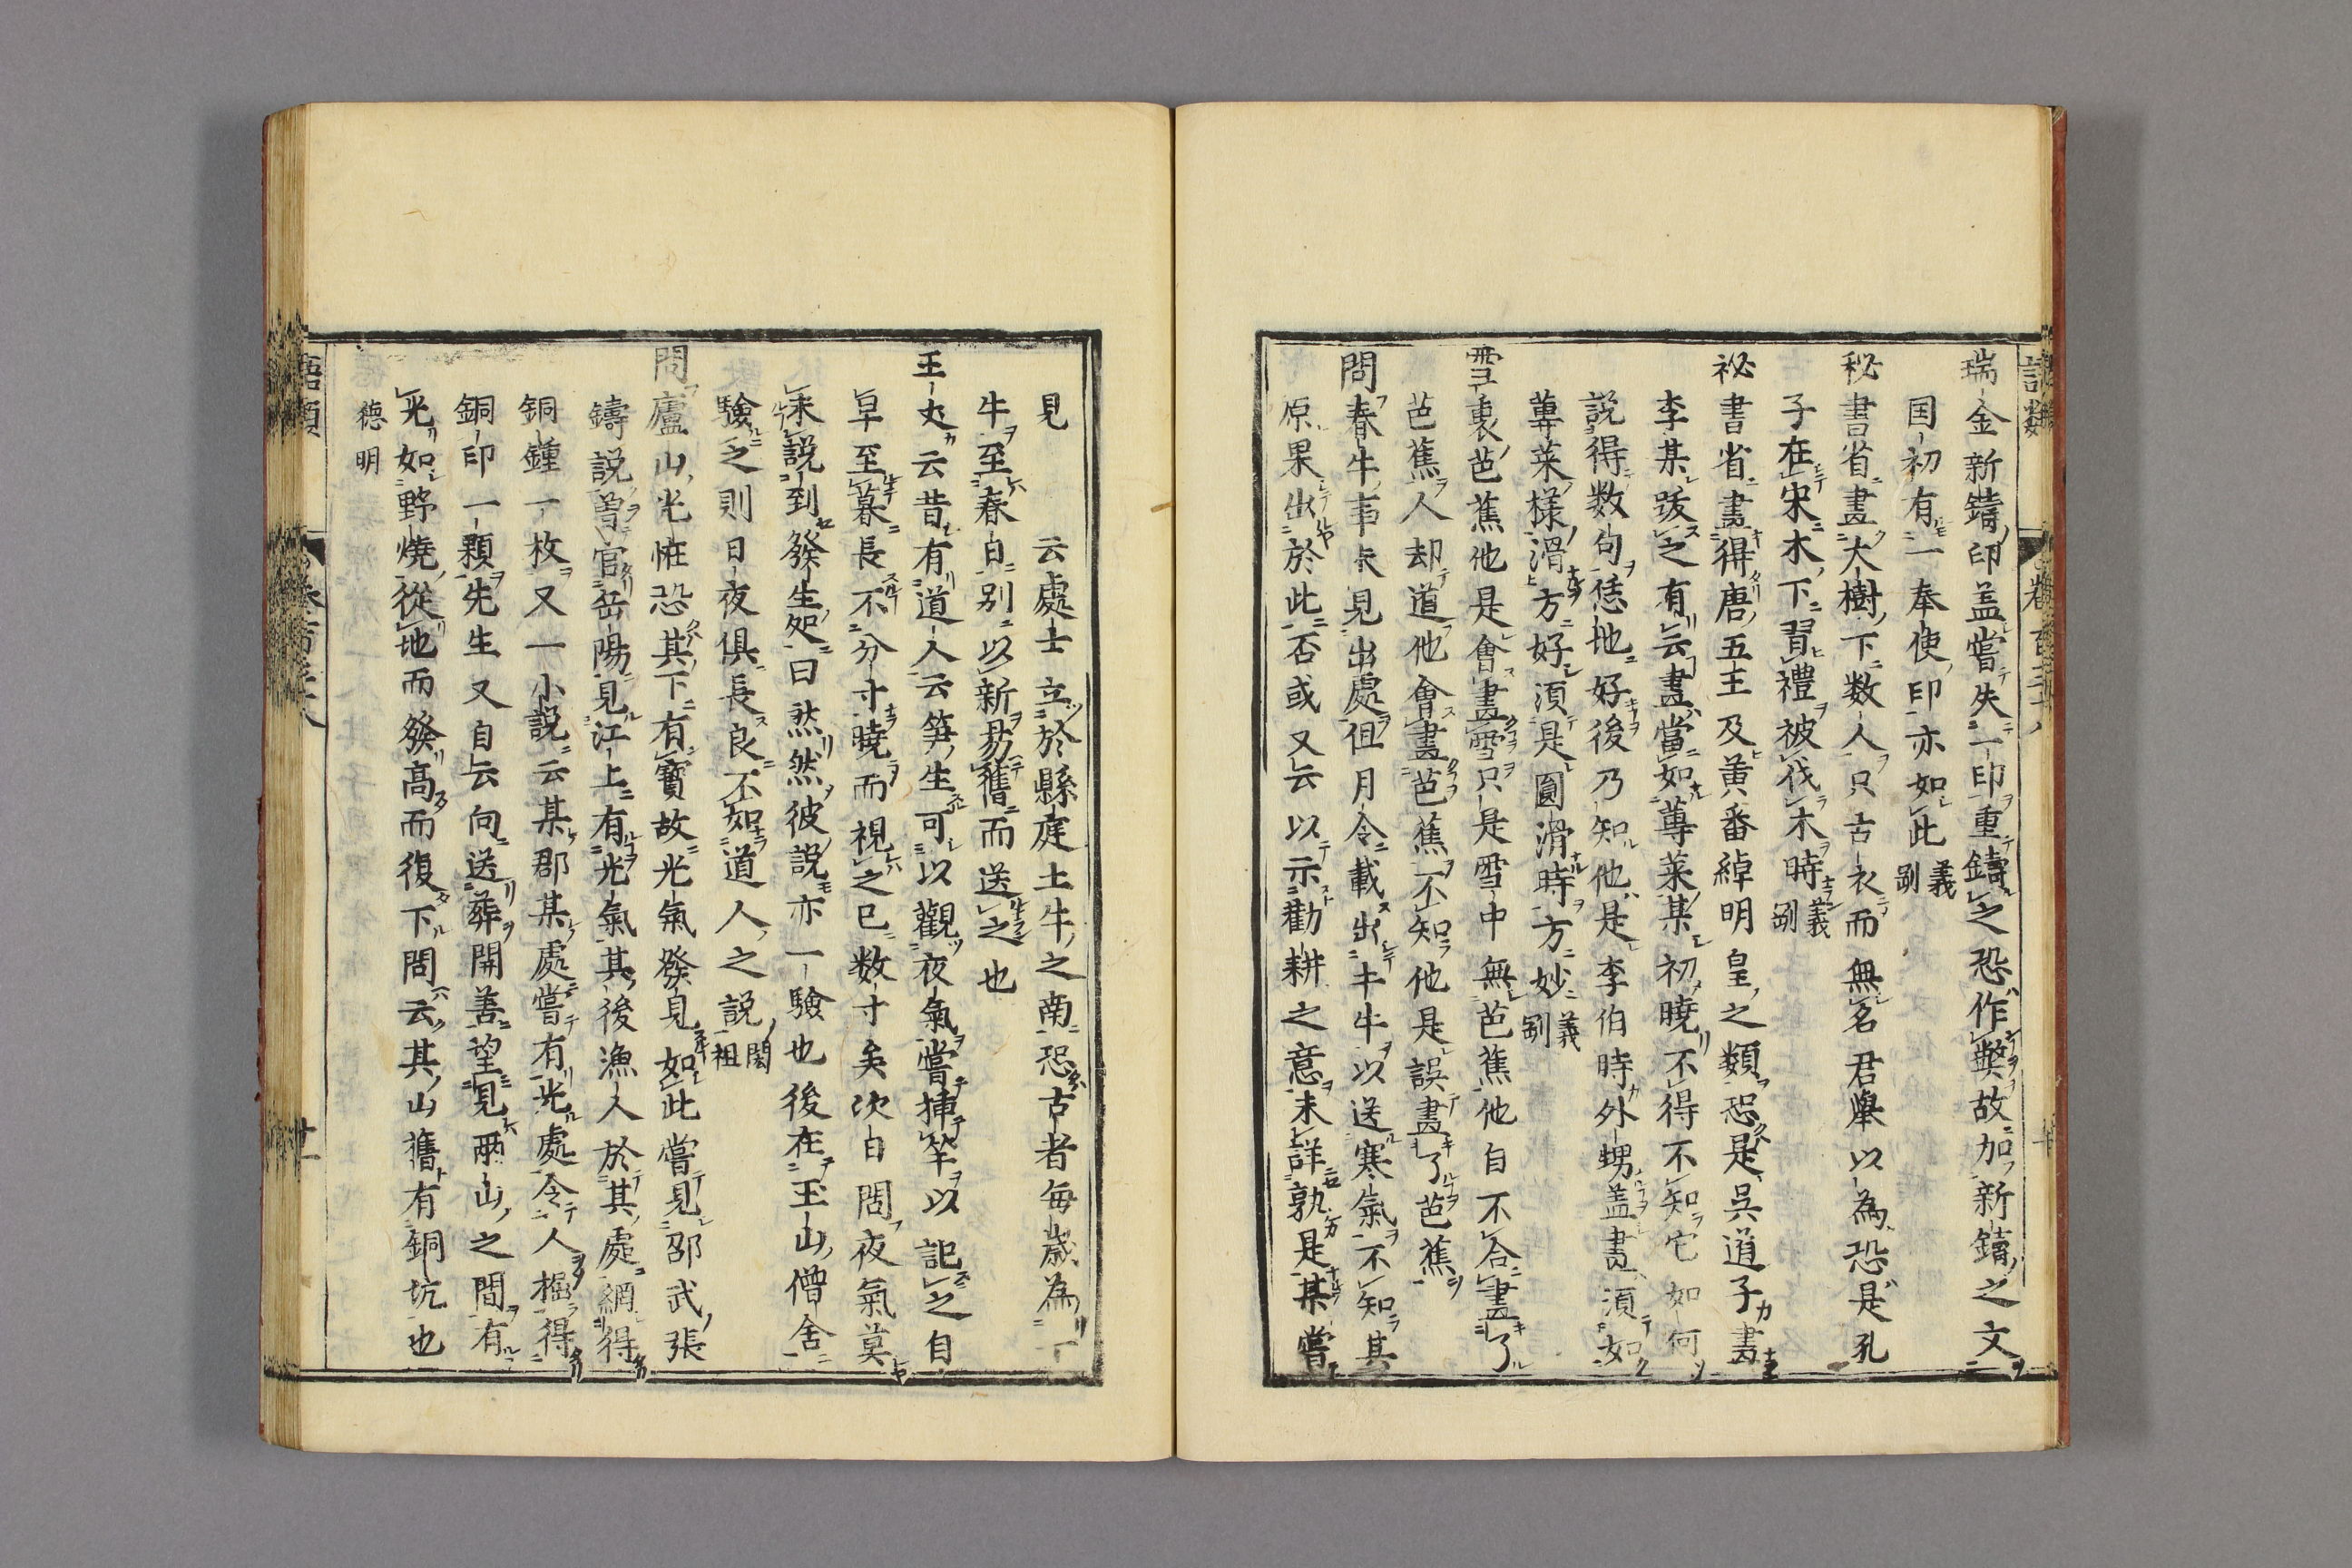 瑞金新鑄印盖嘗失一印重鑄之恐作弊故加新鑄之文
国初有一奉使印亦如此 義剛
秘書省畫大樹下数人只古衣而無名君舉以為恐是孔
子在宋木下習禮被伐木時 義剛
祕書省畫得唐五王及黄番綽明皇之類恐是呉道子畫
李某跋之有云畫當如蓴菜某初曉不得不知它如何
說得数句恁地好後乃知他是李伯時外甥盖畫須如
蓴菜様滑方好須是圓滑時方妙 義剛
雪裏芭蕉他是會畫雪只是雪中無芭蕉他自不合畫了
芭蕉人却道他會畫芭蕉不知他是誤畫了芭蕉
問春牛事未見出處但月令載出土牛以送寒氣不知其
原果出於此否或又云以示勸耕之意未詳孰是某嘗
見 云處士立於縣庭土牛之南恐古者毎歳為一
牛至春日別以新易舊而送之也
王丈云昔有道人云笋生可以觀夜氣嘗挿竿以記之自
早至暮長不分寸曉而視之已数寸矣次日問夜氣莫
未說到發生処曰然然彼說亦一驗也後在玉山僧舍
驗之則日夜俱長良不如道人之說 閎祖
問廬山光恠恐其下有寶故光氣發見如此嘗見邵武張
鑄說曽官岳陽見江上有光氣其後漁人於其處網得
銅鍾一枚又一小說云某郡某處嘗有光處令人掘得
銅印一顆先生又自云向送葬開善望見兩山之間有
光如野燒從地而發高而復下問云其山舊有銅坑也
德明
語類